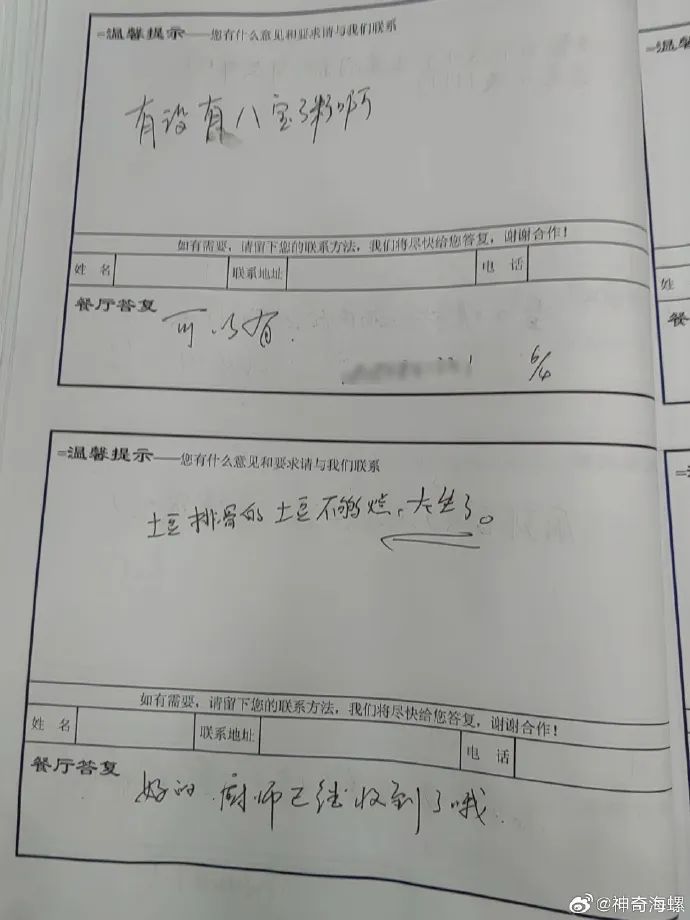 =温馨提示——您有什么意见和要求请与我们联系
有没有八宝粥啊
如有需要，请留下您的联系方法，我们将尽快给您答复，谢谢合作！
姓 名 联系地址 电 话
餐厅答复
可以有.
6/4
=温馨提示——您有什么意见和要求请与我们联系
土豆排骨的土豆不够烂，太生了。
如有需要，请留下您的联系方法，我们将尽快给您答复，谢谢合作！
姓 名 联系地址 电 话
餐厅答复
好的 厨师已经收到了哦.
=温
姓
餐
@神奇海螺